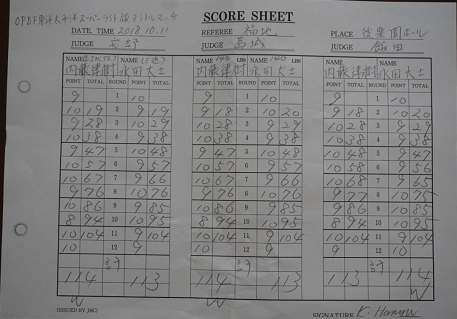 OPBF東洋太平洋スーパーライト級タイトルマッチ
SCORE SHEET
DATE. TIME 2018.10.11 REFEREE 福地 PLACE 後楽園ホール
JUDGE 安部 JUDGE JUDGE 飯田
NAME NAME NAME 140 LBS NAME 140 LBS NAME NAME
内藤律樹 永田大士 内藤律樹 永田大士 内藤律樹 永田大士
POINT TOTAL ROUND POINT TOTAL POINT TOTAL ROUND POINT TOTAL POINT TOTAL ROUND POINT TOTAL
9 1 10 9 1 10 9 1 10
10 19 2 9 19 9 18 2 10 20 9 18 2 10 20
9 28 3 10 29 10 28 3 9 29 10 28 3 9 29
10 38 4 9 38 10 38 4 9 38 10 38 4 9 38
9 47 5 10 48 9 47 5 10 48 10 48 5 9 47
10 57 6 9 57 10 57 6 9 57 10 58 6 9 56
10 67 7 9 66 10 67 7 9 66 10 68 7 9 65
9 76 8 10 76 9 76 8 10 76 9 77 8 10 75
10 86 9 9 85 10 86 9 9 85 9 86 9 10 85
8 94 10 10 95 8 94 10 10 95 8 94 10 10 95
10 104 11 9 104 10 104 11 9 104 10 104 11 9 104
10 12 9 10 12 9 10 12 9
計 計 計
114 113 114 113 114 113
W W W
ISSUED BY JBC) SIGNATURE